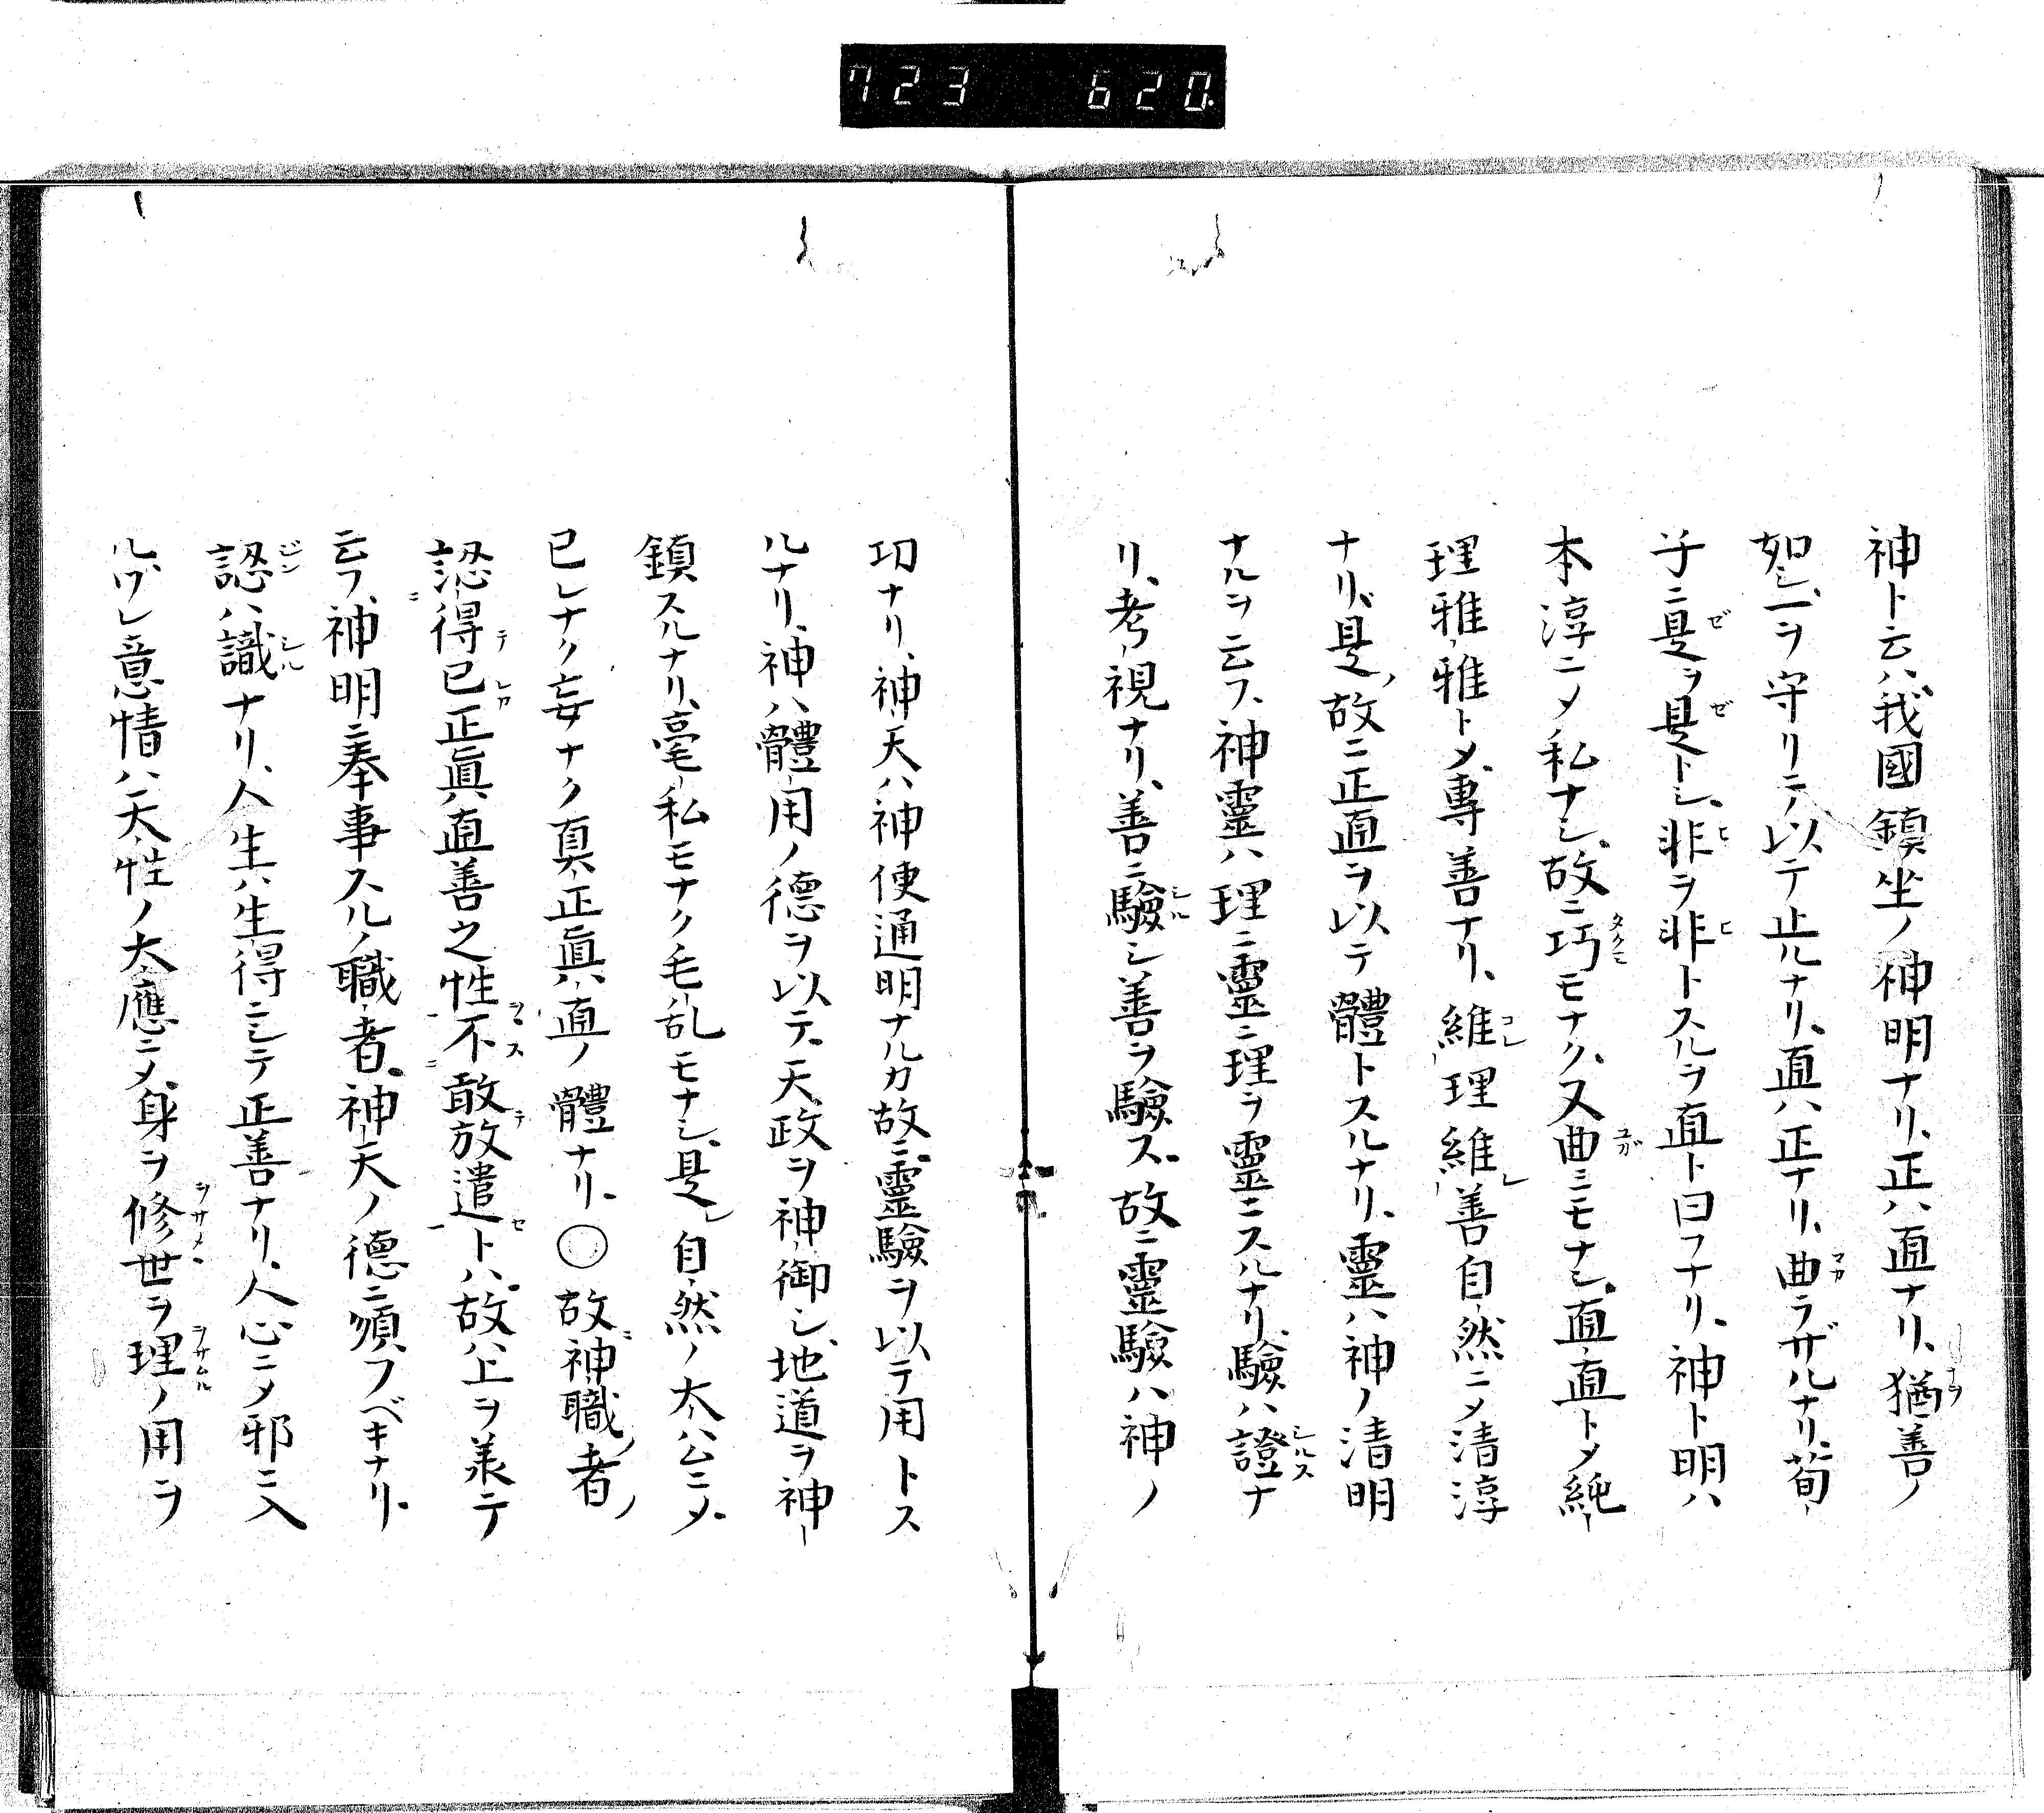 723 620
神ト云ハ、我國鎮坐ノ神明ナリ、正ハ直ナリ、猶善ノ
如シ、一ヲ守リニテ以テ止ルナリ、直ハ正ナリ、曲ラザルナリ、荀
子ニ是ヲ是トシ、非ヲ非トスルヲ直ト曰フナリ、神ト明ハ
本淳ニメ私ナシ、故ニ巧モナク、又曲ミモナシ、直直トメ純
理雅雅トメ、專善ナリ、維理維善自然ニメ清淳
ナリ、是故ニ正直ヲ以テ體トスルナリ、靈ハ神ノ清明
ナルヲ云フ、神靈ハ理ニ靈ニ理ヲ靈ニスルナリ、驗ハ證ナ
リ、考視ナリ、善ニ驗シ善ヲ驗ス、故ニ靈驗ハ神ノ
功ナリ、神天ハ神使通明ナルカ故ニ、靈驗ヲ以テ用トス
ルナリ、神ハ體用ノ德ヲ以テ、天政ヲ神御シ、地道ヲ神
鎮スルナリ、毫私モナク毛乱モナシ、是自然ノ太公ニメ、
已レナク妄ナク眞正眞直ノ體ナリ、○故神職者
認得已正眞直善之性不敢放遣トハ、故ハ上ヲ承テ
云フ、神明ニ奉事スルノ職者、神天ノ德ニ須フベキナリ、
認ハ識ナリ、人生ハ生得ニシテ正善ナリ、人心ニメ邪ニ入
ル、ワレ意情ハ天性ノ大應ニメ、身ヲ修世ヲ理ノ用ヲ